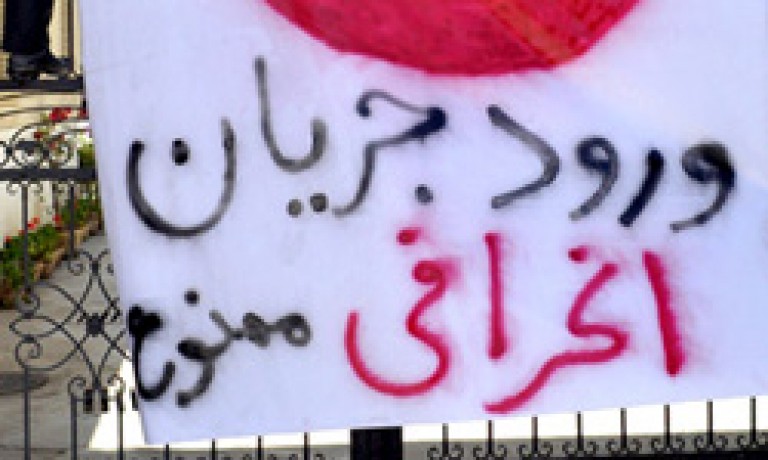 ورود جریان
انحرافی ممنوع